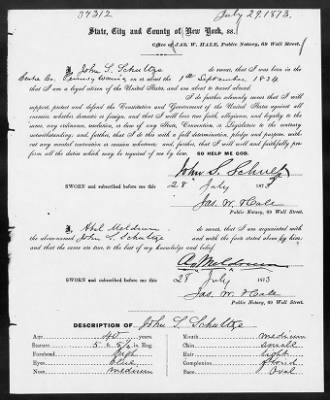 37312
July 29, 1873.
State, City and County of New York, ss.
Office of JAS. W. HALE, Public Notary, 69 Wall Street.
I, John S. Schultze do swear, that I was born in the
Centre Co. Pennsylvania on or about the 1st September 1834
that I am a legal citizen of the United States, and am about to travel abroad.
I do further solemnly swear that I will
support, protect and defend the Constitution and Government of the United States against all
enemies, whether domestic or foreign; and that I will bear true faith, allegiance, and loyalty to the
same, any ordinance, resolution, or law of any State, Convention, or Legislature to the contrary
notwithstanding; and further, that I do this with a full determination, pledge and purpose, with-
out any mental reservation or evasion whatsoever; and, further, that I will well and faithfully per-
form all the duties which may be required of me by law.
SO HELP ME GOD.
John S. Schultze
SWORN and subscribed before me this
28 July 1873
Jas. W. Hale
Public Notary, 69 Wall Street.
I, Abel Meldrum do swear, that I am acquainted with
the above-named John S. Schultze and with the facts stated above by him;
and that the same are true to the best of my knowledge and belief.
A. Meldrum
SWORN and subscribed before me this
28 July 1873
Jas. W. Hale
Public Notary, 69 Wall Street.
DESCRIPTION OF John S. Schultze
Age years
Mouth medium
Stature 5 ft in Eng.
Chin small
Forehead high
Hair light
Eyes blue
Complexion florid
Nose medium
Face Oval